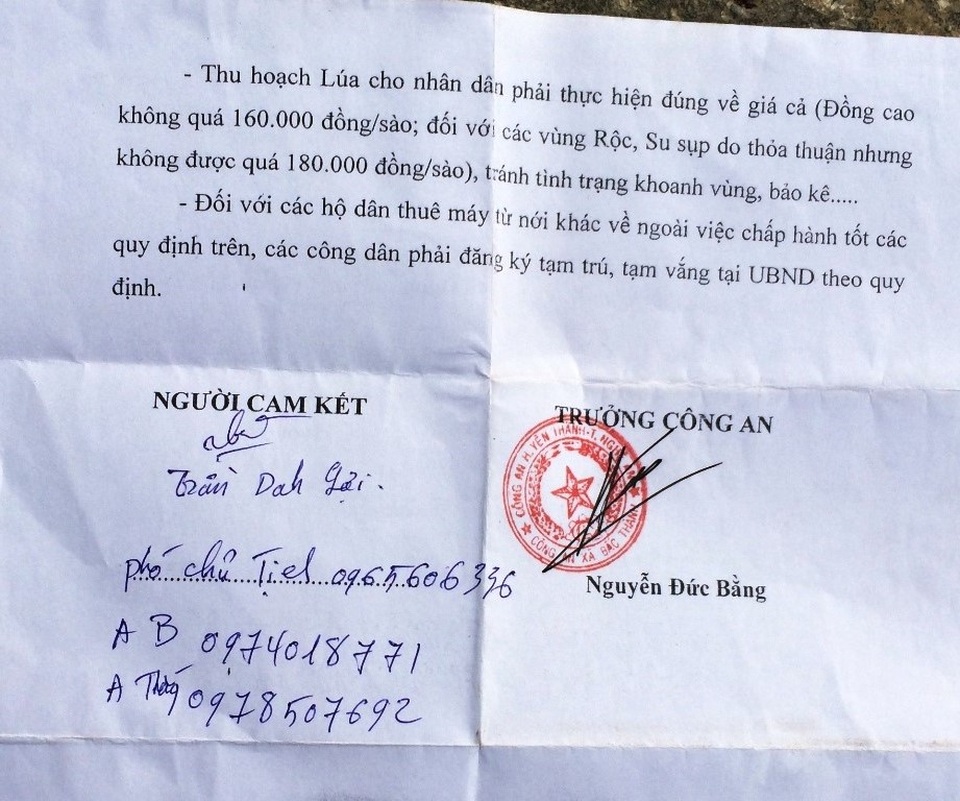 - Thu hoạch Lúa cho nhân dân phải thực hiện đúng về giá cả (Đồng cao
không quá 160.000 đồng/sào; đối với các vùng Rộc, Su sụp do thỏa thuận nhưng
không được quá 180.000 đồng/sào), tránh tình trạng khoanh vùng, bảo kê.....
- Đối với các hộ dân thuê máy từ nới khác về ngoài việc chấp hành tốt các
quy định trên, các công dân phải đăng ký tạm trú, tạm vắng tại UBND theo quy
định.
NGƯỜI CAM KẾT
TRƯỞNG CÔNG AN
CÔNG AN H. YÊN THÀNH-T.
CÔNG AN XÃ BẮC THÀNH
Trần
phó chủ 0965.606336
Nguyễn Đức Bằng
A B 0974018771
A 0978507692